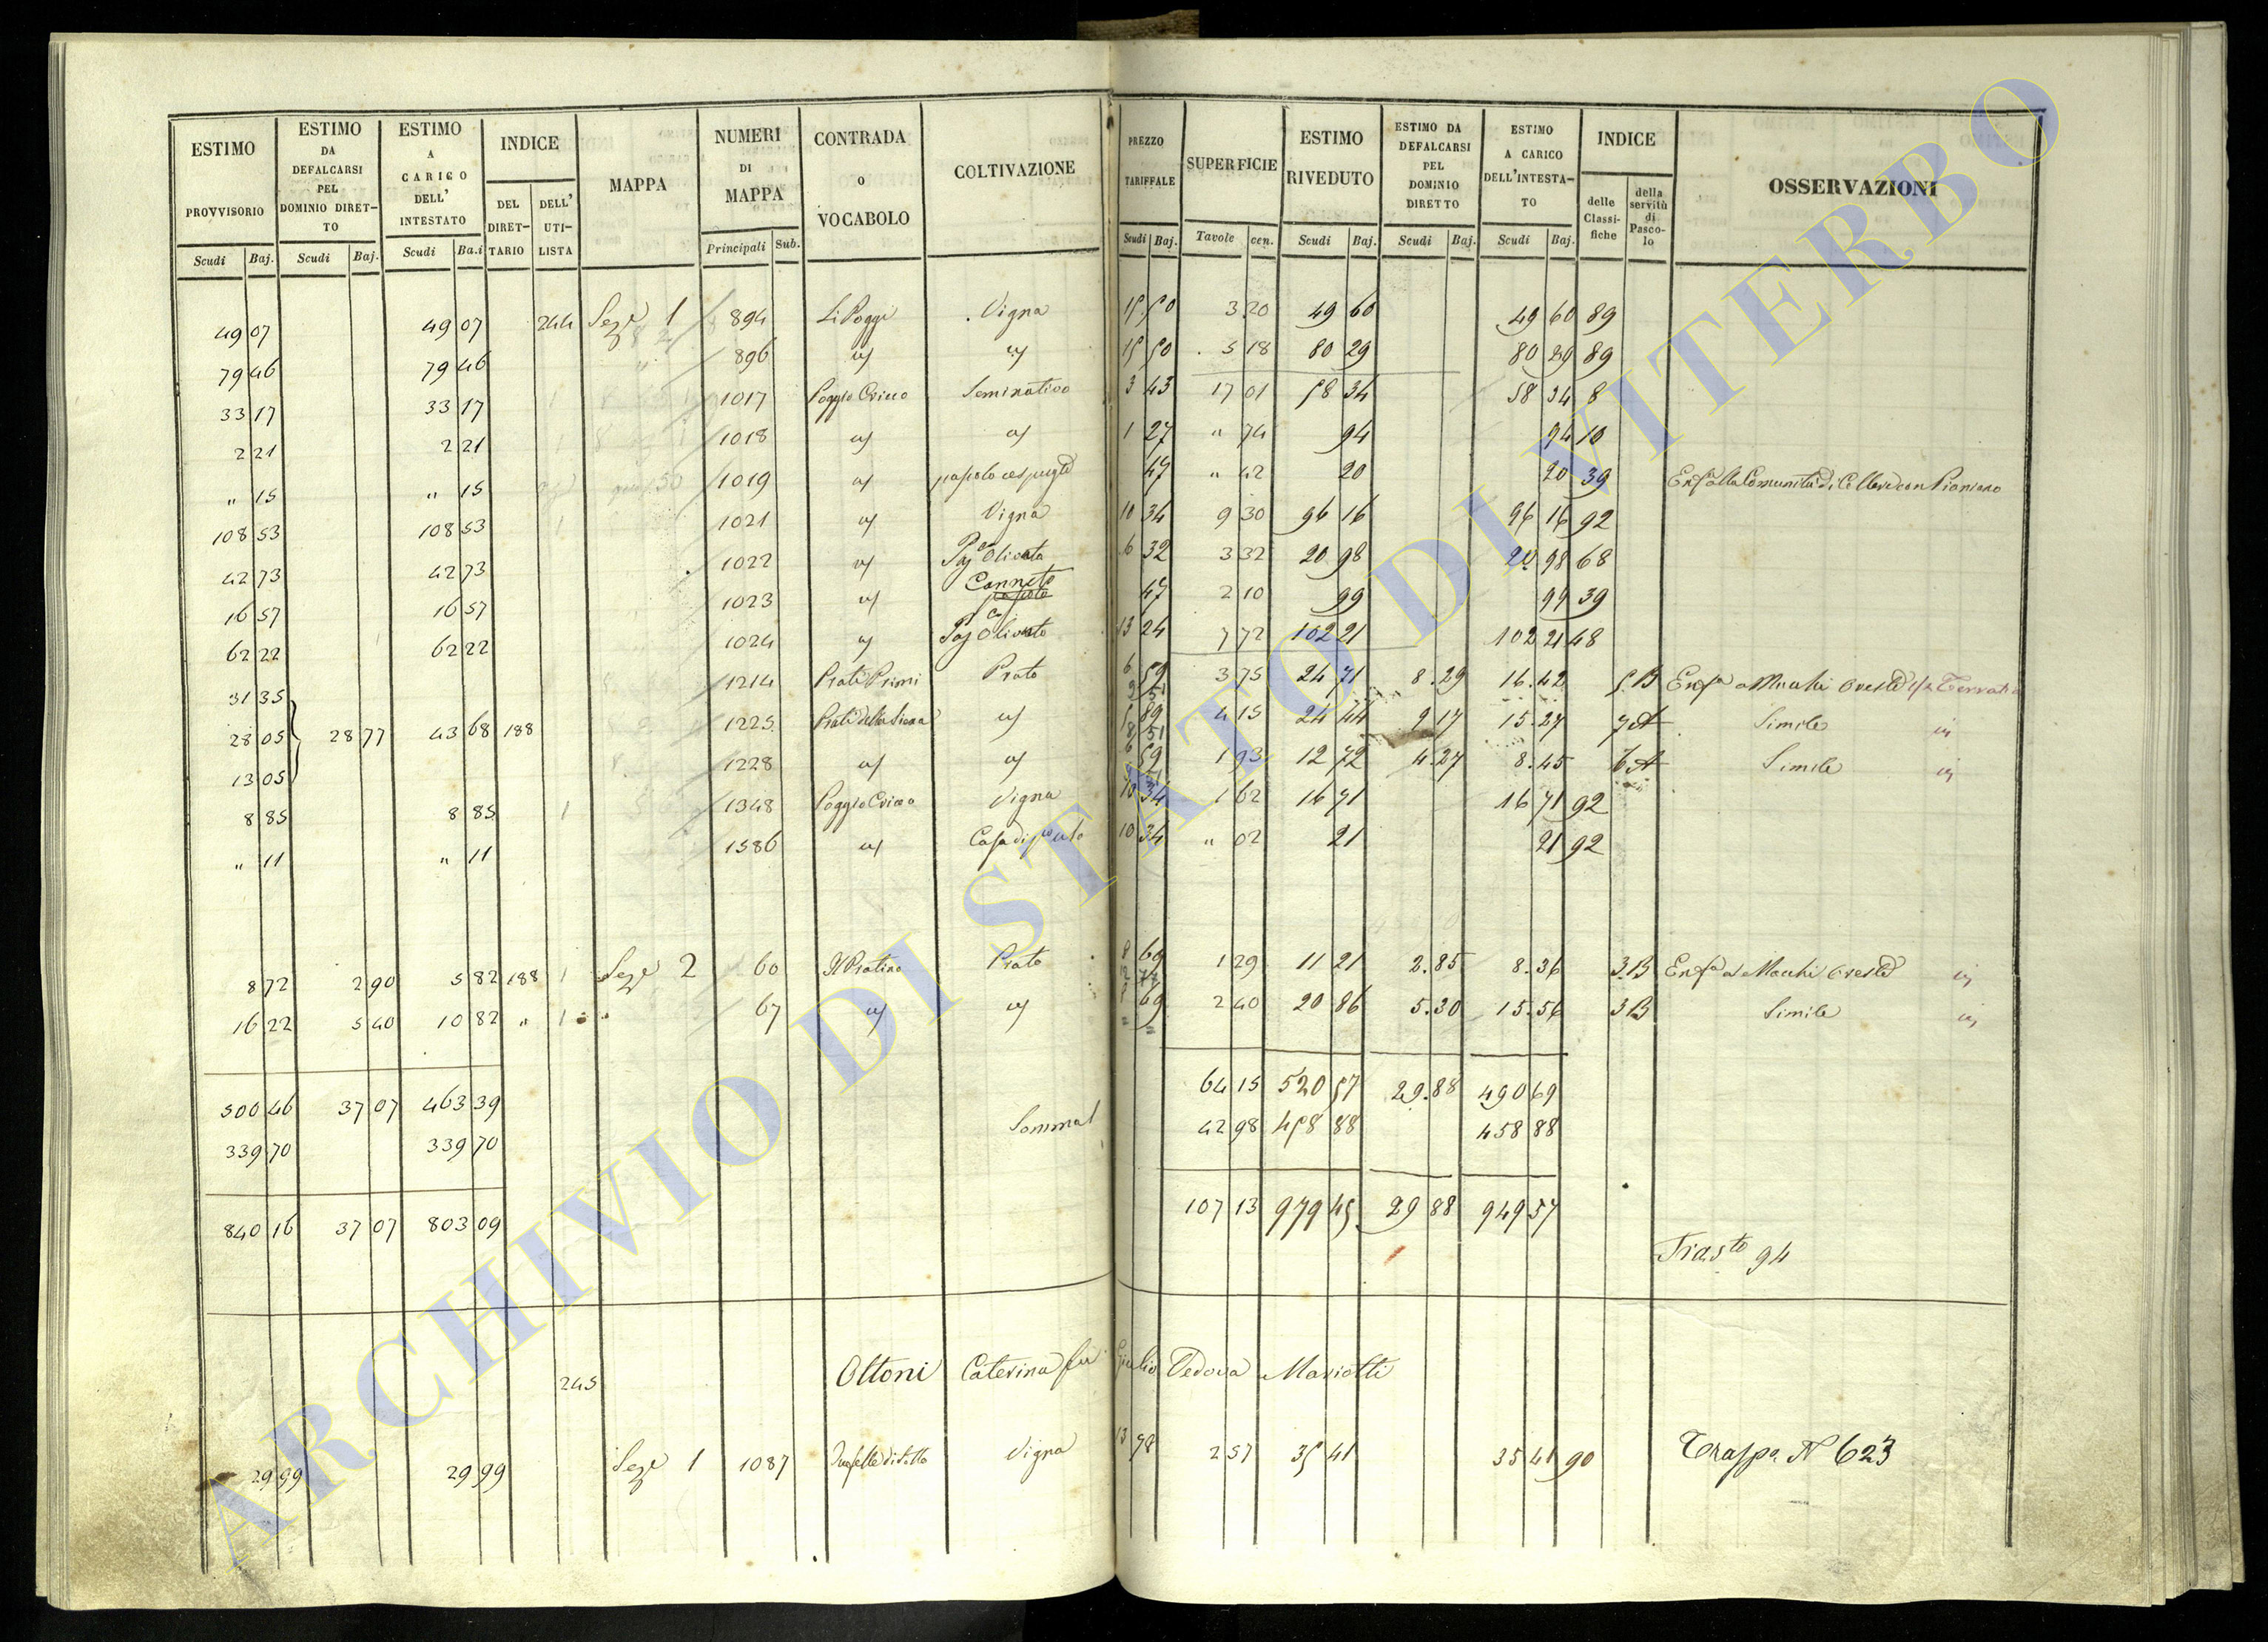 ESTIMO PROVVISORIO | ESTIMO DA DEFALCARSI PEL DOMINIO DIRETTO | ESTIMO A CARICO DELL' INTESTATO | INDICE | MAPPA | NUMERI DI MAPPA | CONTRADA O VOCABOLO | COLTIVAZIONE | PREZZO TARIFFALE | SUPERFICIE | ESTIMO RIVEDUTO | ESTIMO DA DEFALCARSI PEL DOMINIO DIRETTO | ESTIMO A CARICO DELL'INTESTATO | INDICE | OSSERVAZIONI
DEL DIRETTARIO | DELL' UTILISTA | delle Classifiche | della servitù di Pascolo
Scudi | Baj. | Scudi | Baj. | Scudi | Ba.i | Principali | Sub. | Scudi | Baj. | Tavole | cen. | Scudi | Baj. | Scudi | Baj. | Scudi | Baj.
49 07 | 49 07 | 244 | Sez.e 1 | 894 | Li Poggi | Vigna | 15 50 | 3 20 | 49 60 | 49 60 | 89
79 46 | 79 46 | 896 | 15 50 | 5 18 | 80 29 | 80 29 | 89
33 17 | 33 17 | 1017 | Seminativo | 3 43 | 17 01 | 58 34 | 58 34 | 8
2 21 | 2 21 | 1018 | 1 27 | " 74 | 94 | 94 | 10
" 15 | " 15 | 1019 | 47 | " 42 | 20 | 20 | 39
108 53 | 108 53 | 1021 | Vigna | 10 34 | 9 30 | 96 16 | 96 16 | 92
42 73 | 42 73 | 1022 | Olivato | 6 32 | 3 32 | 20 98 | 20 98 | 68
16 57 | 16 57 | 1023 | Canneto | 47 | 2 10 | 99 | 99 | 39
62 22 | 62 22 | 1024 | Olivato | 13 24 | 7 72 | 102 21 | 102 21 | 48
31 35 | 1214 | Prati Primi | Prato | 6 59 | 3 75 | 24 71 | 8.29 | 16.42 | 5.B
28 05 | 28 77 | 43 68 | 188 | 1225 | 5 89 | 4 15 | 24 44 | 9 17 | 15.27 | 7A | Simile
13 05 | 1228 | 6 59 | 1 93 | 12 72 | 4.27 | 8.45 | 6A | Simile
8 85 | 8 85 | 1 | 1348 | Vigna | 10 34 | 1 62 | 16 71 | 16 71 | 92
" 11 | " 11 | 1586 | 10 34 | " 02 | 21 | 21 | 92
8 72 | 2 90 | 5 82 | 188 | 1 | Sez.e 2 | 60 | Il Pratino | Prato | 8 69 | 1 29 | 11 21 | 2.85 | 8.36 | 3.B
16 22 | 5 40 | 10 82 | " | 1 | 67 | 8 69 | 2 40 | 20 86 | 5.30 | 15.56 | 3B | Simile
500 46 | 37 07 | 463 39 | 64 15 | 520 57 | 29.88 | 490 69
339 70 | 339 70 | 42 98 | 458 88 | 458 88
840 16 | 37 07 | 803 09 | 107 13 | 979 45 | 29 88 | 949 57
94
245 | Ottoni Caterina fu Giulio Vedova Mariotti
29 99 | 29 99 | Sez.e 1 | 1087 | Vigna | 13 78 | 2 57 | 35 41 | 35 41 | 90 | N 623
ARCHIVIO DI STATO DI VITERBO